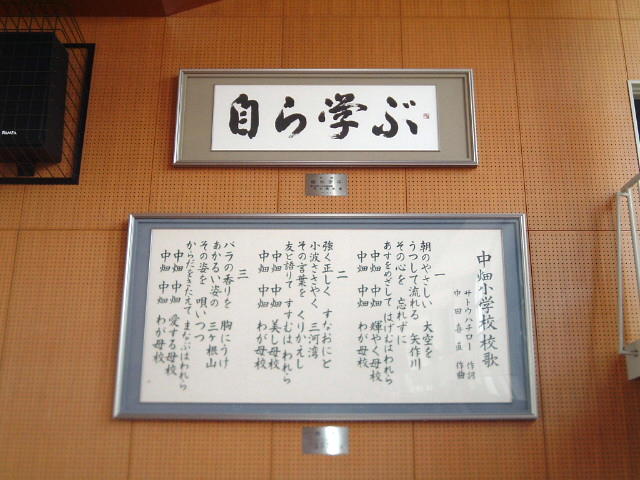 自ら学ぶ
中畑小学校校歌
サトウハチロー 作詞
中田喜直 作曲
一
朝のやさしい 大空を
うつして流れる 矢作川
その心を 忘れずに
あすをめざして はげむはわれら
中畑 中畑 輝やく母校
中畑 中畑 わが母校
二
強く正しく すなおにと
小波ささやく 三河湾
その言葉を くりかえし
友と語りて すすむは われら
中畑 中畑 美し母校
中畑 中畑 わが母校
三
バラの香りを 胸にうけ
あかるい姿の 三ヶ根山
その姿を 唄いつつ
からだをきたえて まなぶはわれら
中畑 中畑 愛する母校
中畑 中畑 わが母校
RAMSA